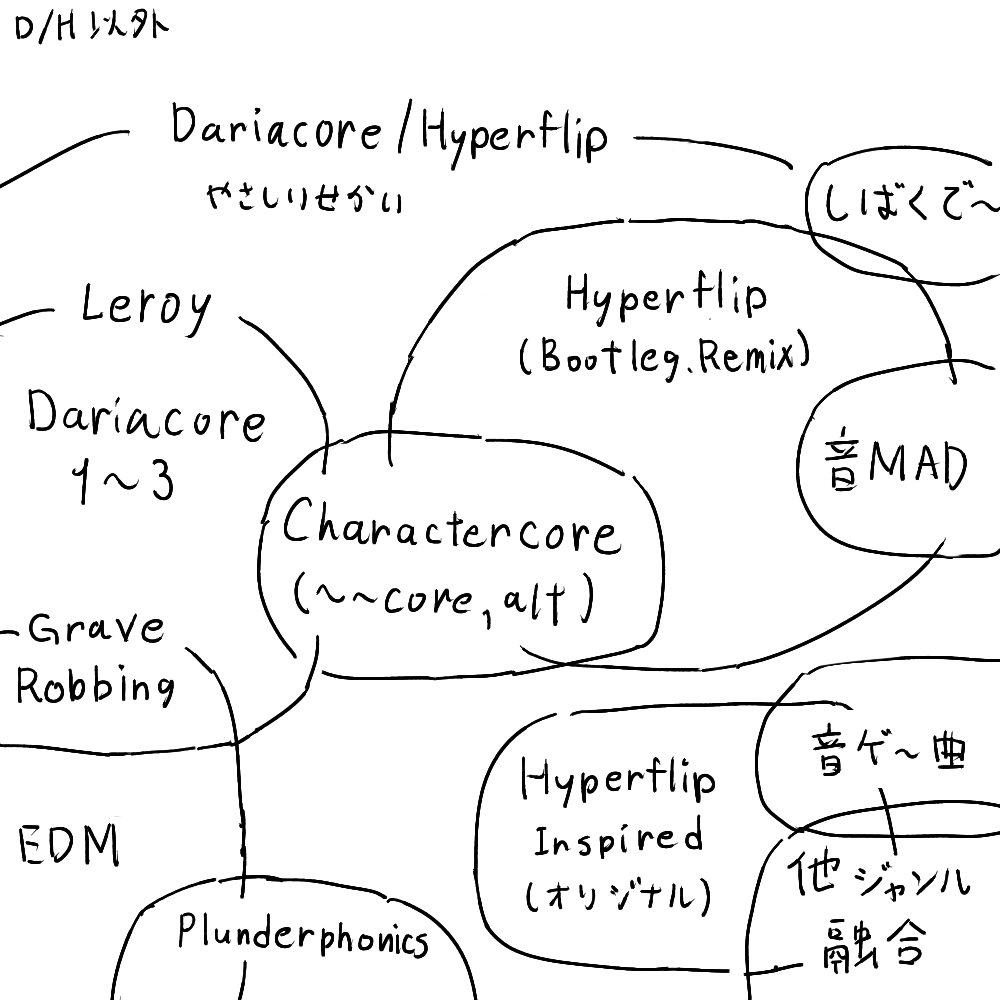 D/H 以外
Dariacore/Hyperflip
やさしいせかい
しばくで～
Leroy
Hyperflip
(Bootleg.Remix)
Dariacore
1～3
音MAD
Charactercore
(～～core, alt)
Grave
Robbing
音ゲ～曲
Hyperflip
Inspired
(オリジナル)
EDM
他ジャンル
融合
Plunderphonics